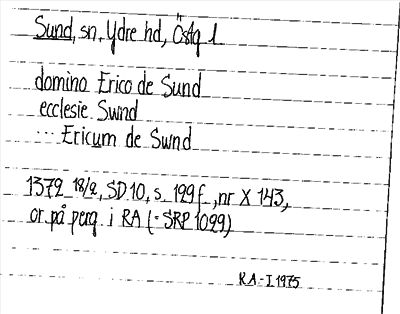 Sund, sn, Ydre hd, Östg 1
domino Erico de Sund
ecclesie Swnd
... Ericum de Swnd
1372 18/2, SD 10, s. 129 f., nr X 143,
or. på perg. i RA (= SRP 1029)
RA-I 1975